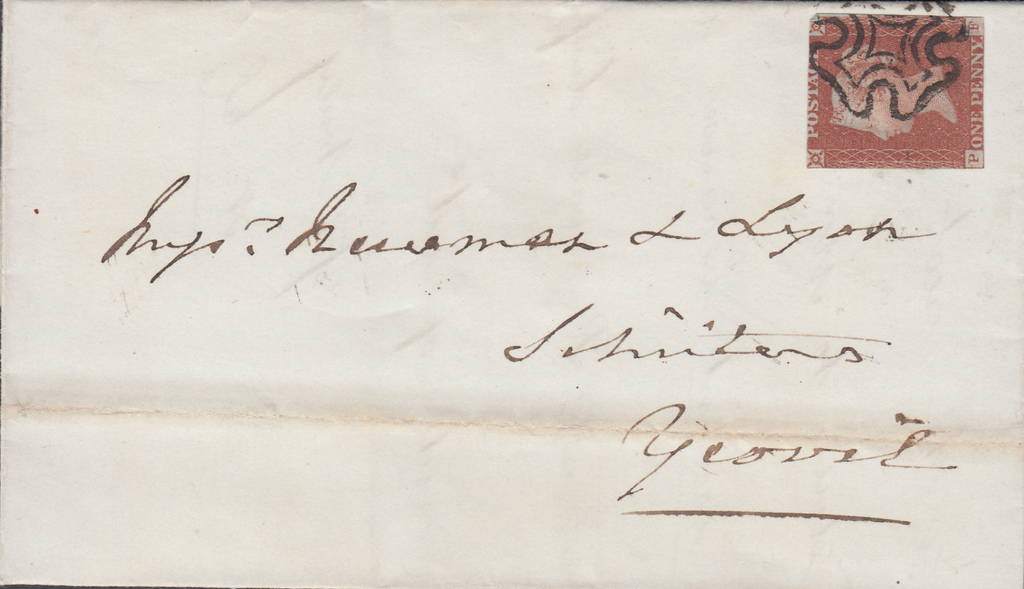 POSTAGE
ONE PENNY.
P F
Messrs. Newman & Lyon
Solicitors
Yeovil